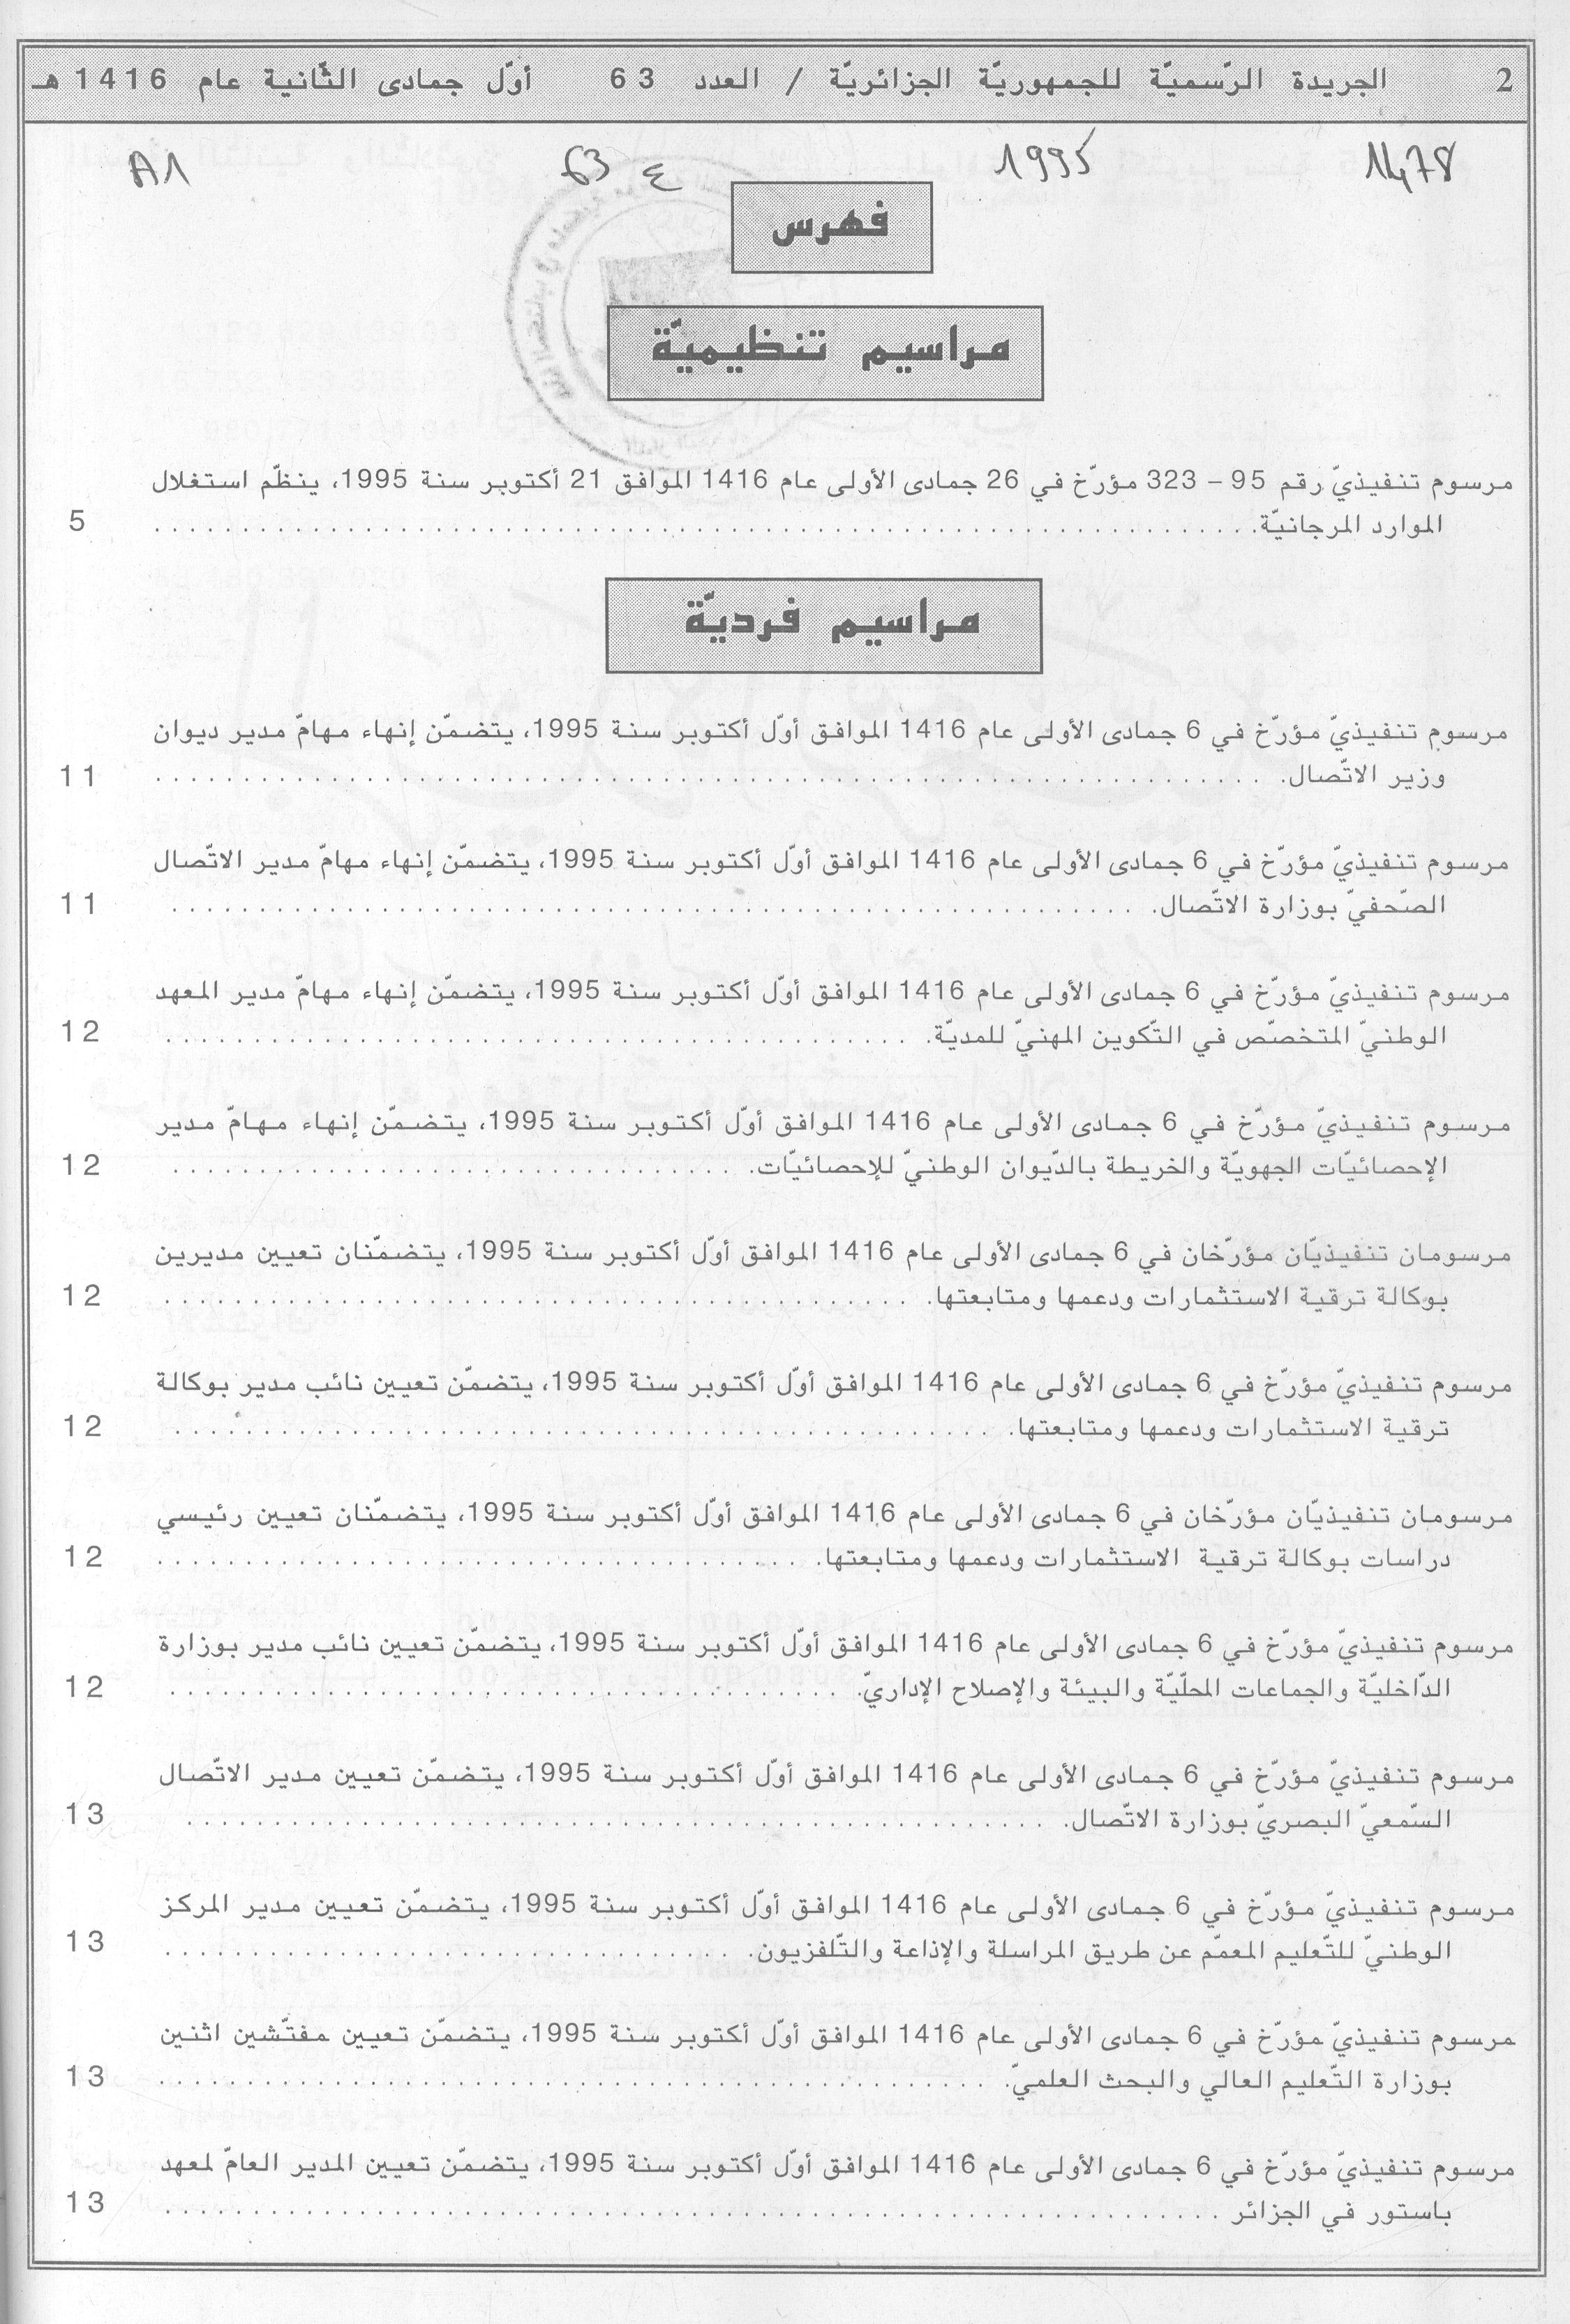 2 الجريدة الرّسميّة للجمهوريّة الجزائريّة / العدد 63 أوّل جمادى الثّانية عام 1416 هـ
1478 1995 ع 63 A1
فهرس
مراسيم تنظيميّة
مرسوم تنفيذيّ رقم 95 – 323 مؤرّخ في 26 جمادى الأولى عام 1416 الموافق 21 أكتوبر سنة 1995، ينظّم استغلال
الموارد المرجانيّة. . . . . . . . . . . . . . . . . . . . 5
مراسيم فرديّة
مرسوم تنفيذيّ مؤرّخ في 6 جمادى الأولى عام 1416 الموافق أوّل أكتوبر سنة 1995، يتضمّن إنهاء مهامّ مدير ديوان
وزير الاتّصال. . . . . . . . . . . . . . . . . . . . 11
مرسوم تنفيذيّ مؤرّخ في 6 جمادى الأولى عام 1416 الموافق أوّل أكتوبر سنة 1995، يتضمّن إنهاء مهامّ مدير الاتّصال
الصّحفيّ بوزارة الاتّصال. . . . . . . . . . . . . . . . . . . . 11
مرسوم تنفيذيّ مؤرّخ في 6 جمادى الأولى عام 1416 الموافق أوّل أكتوبر سنة 1995، يتضمّن إنهاء مهامّ مدير المعهد
الوطنيّ المتخصّص في التّكوين المهنيّ للمديّة. . . . . . . . . . . . . . . . . . . . 12
مرسوم تنفيذيّ مؤرّخ في 6 جمادى الأولى عام 1416 الموافق أوّل أكتوبر سنة 1995، يتضمّن إنهاء مهامّ مدير
الإحصائيّات الجهويّة والخريطة بالدّيوان الوطنيّ للإحصائيّات. . . . . . . . . . . . . . . . . . . . 12
مرسومان تنفيذيّان مؤرّخان في 6 جمادى الأولى عام 1416 الموافق أوّل أكتوبر سنة 1995، يتضمّنان تعيين مديرين
بوكالة ترقية الاستثمارات ودعمها ومتابعتها. . . . . . . . . . . . . . . . . . . . 12
مرسوم تنفيذيّ مؤرّخ في 6 جمادى الأولى عام 1416 الموافق أوّل أكتوبر سنة 1995، يتضمّن تعيين نائب مدير بوكالة
ترقية الاستثمارات ودعمها ومتابعتها. . . . . . . . . . . . . . . . . . . . 12
مرسومان تنفيذيّان مؤرّخان في 6 جمادى الأولى عام 1416 الموافق أوّل أكتوبر سنة 1995، يتضمّنان تعيين رئيسي
دراسات بوكالة ترقية الاستثمارات ودعمها ومتابعتها. . . . . . . . . . . . . . . . . . . . 12
مرسوم تنفيذيّ مؤرّخ في 6 جمادى الأولى عام 1416 الموافق أوّل أكتوبر سنة 1995، يتضمّن تعيين نائب مدير بوزارة
الدّاخليّة والجماعات المحلّيّة والبيئة والإصلاح الإداريّ. . . . . . . . . . . . . . . . . . . . 12
مرسوم تنفيذيّ مؤرّخ في 6 جمادى الأولى عام 1416 الموافق أوّل أكتوبر سنة 1995، يتضمّن تعيين مدير الاتّصال
السّمعيّ البصريّ بوزارة الاتّصال. . . . . . . . . . . . . . . . . . . . 13
مرسوم تنفيذيّ مؤرّخ في 6 جمادى الأولى عام 1416 الموافق أوّل أكتوبر سنة 1995، يتضمّن تعيين مدير المركز
الوطنيّ للتّعليم المعمّم عن طريق المراسلة والإذاعة والتّلفزيون. . . . . . . . . . . . . . . . . . . . 13
مرسوم تنفيذيّ مؤرّخ في 6 جمادى الأولى عام 1416 الموافق أوّل أكتوبر سنة 1995، يتضمّن تعيين مفتّشين اثنين
بوزارة التّعليم العالي والبحث العلميّ. . . . . . . . . . . . . . . . . . . . 13
مرسوم تنفيذيّ مؤرّخ في 6 جمادى الأولى عام 1416 الموافق أوّل أكتوبر سنة 1995، يتضمّن تعيين المدير العامّ لمعهد
باستور في الجزائر . . . . . . . . . . . . . . . . . . . . 13